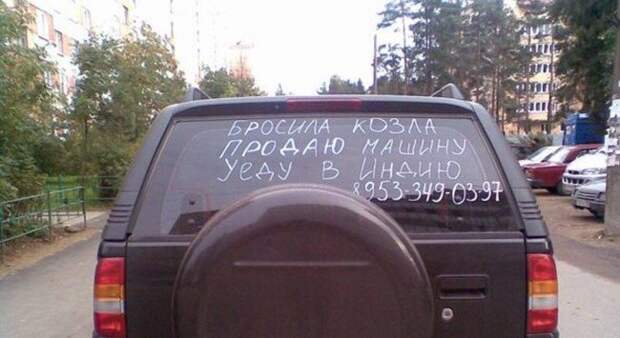 БРОСИЛА КОЗЛА
ПРОДАЮ МАШИНУ
УЕДУ В ИНДИЮ
8953-349-03-97